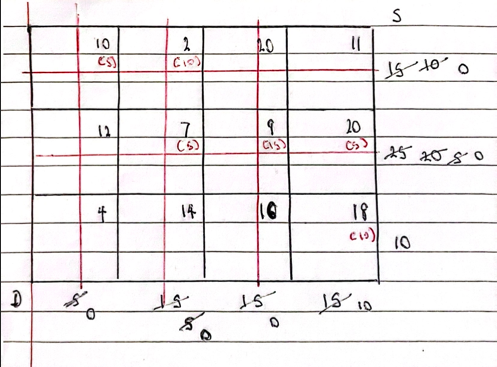 S
10 2 20 11
(5) (10) 15 10 0
12 7 9 20
(5) (15) (5) 25 20 5 0
4 14 16 18
(10) 10
D 5 15 15 15 10
0 5 0 0